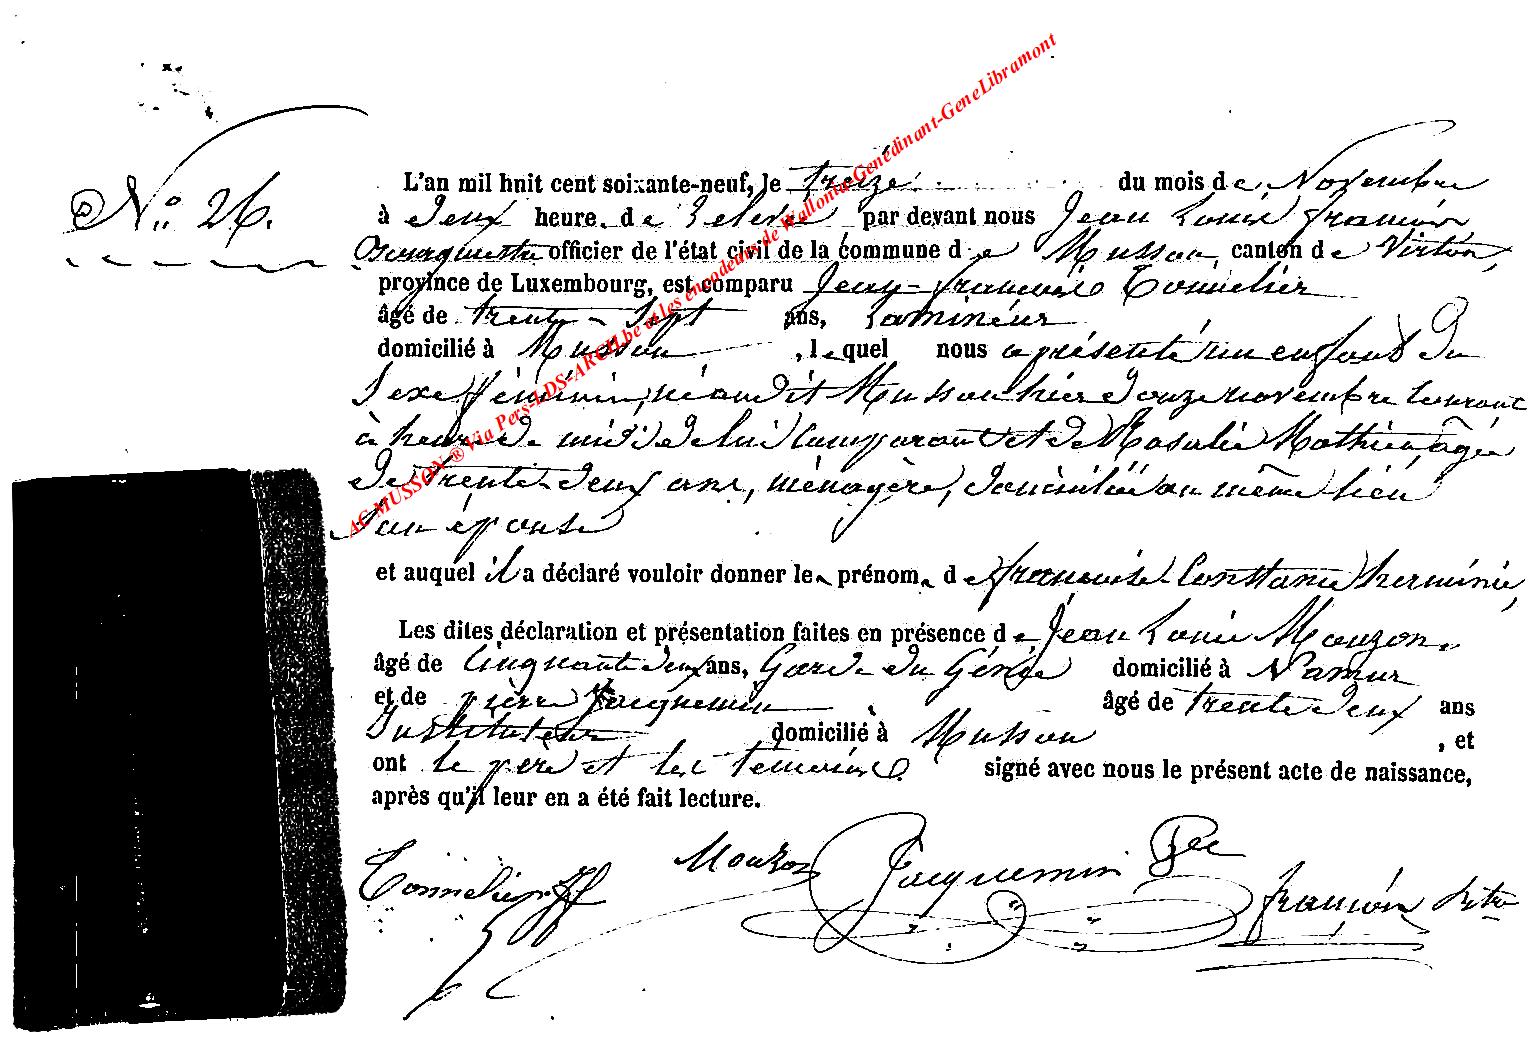 AC MUSSON ® Via Pers-LDS-ARCH.be et les encodeurs de Wallonia-Genedinant-GeneLibramont
N.° 26.
L'an mil huit cent soixante-neuf, le treize du mois de Novembre
à deux heure. de relevée, par devant nous Jean Louis François
officier de l'état civil de la commune de Musson, canton de Virton,
province de Luxembourg, est comparu Jean-François Tonnelier
âgé de trente-sept ans, Lamineur
domicilié à Musson, lequel nous a présenté un enfant du
sexe féminin, né audit Musson hier douze novembre courant
à heure de midi de lui comparant et de Rosalie Mathieu, âgée
de trente-deux ans, ménagère, domiciliée au même lieu
son épouse
et auquel il a déclaré vouloir donner le prénom de françoise Constance herminie,
Les dites déclaration et présentation faites en présence de Jean Louis Mouzon
âgé de Cinquante deux ans, Garde du Génie domicilié à Namur
et de pierre Jacquemin âgé de trente deux ans
Instituteur domicilié à Musson, et
ont le père et les témoins signé avec nous le présent acte de naissance,
après qu'il leur en a été fait lecture.
Tonnelier Jf Mouzon Jacquemin Pre françois